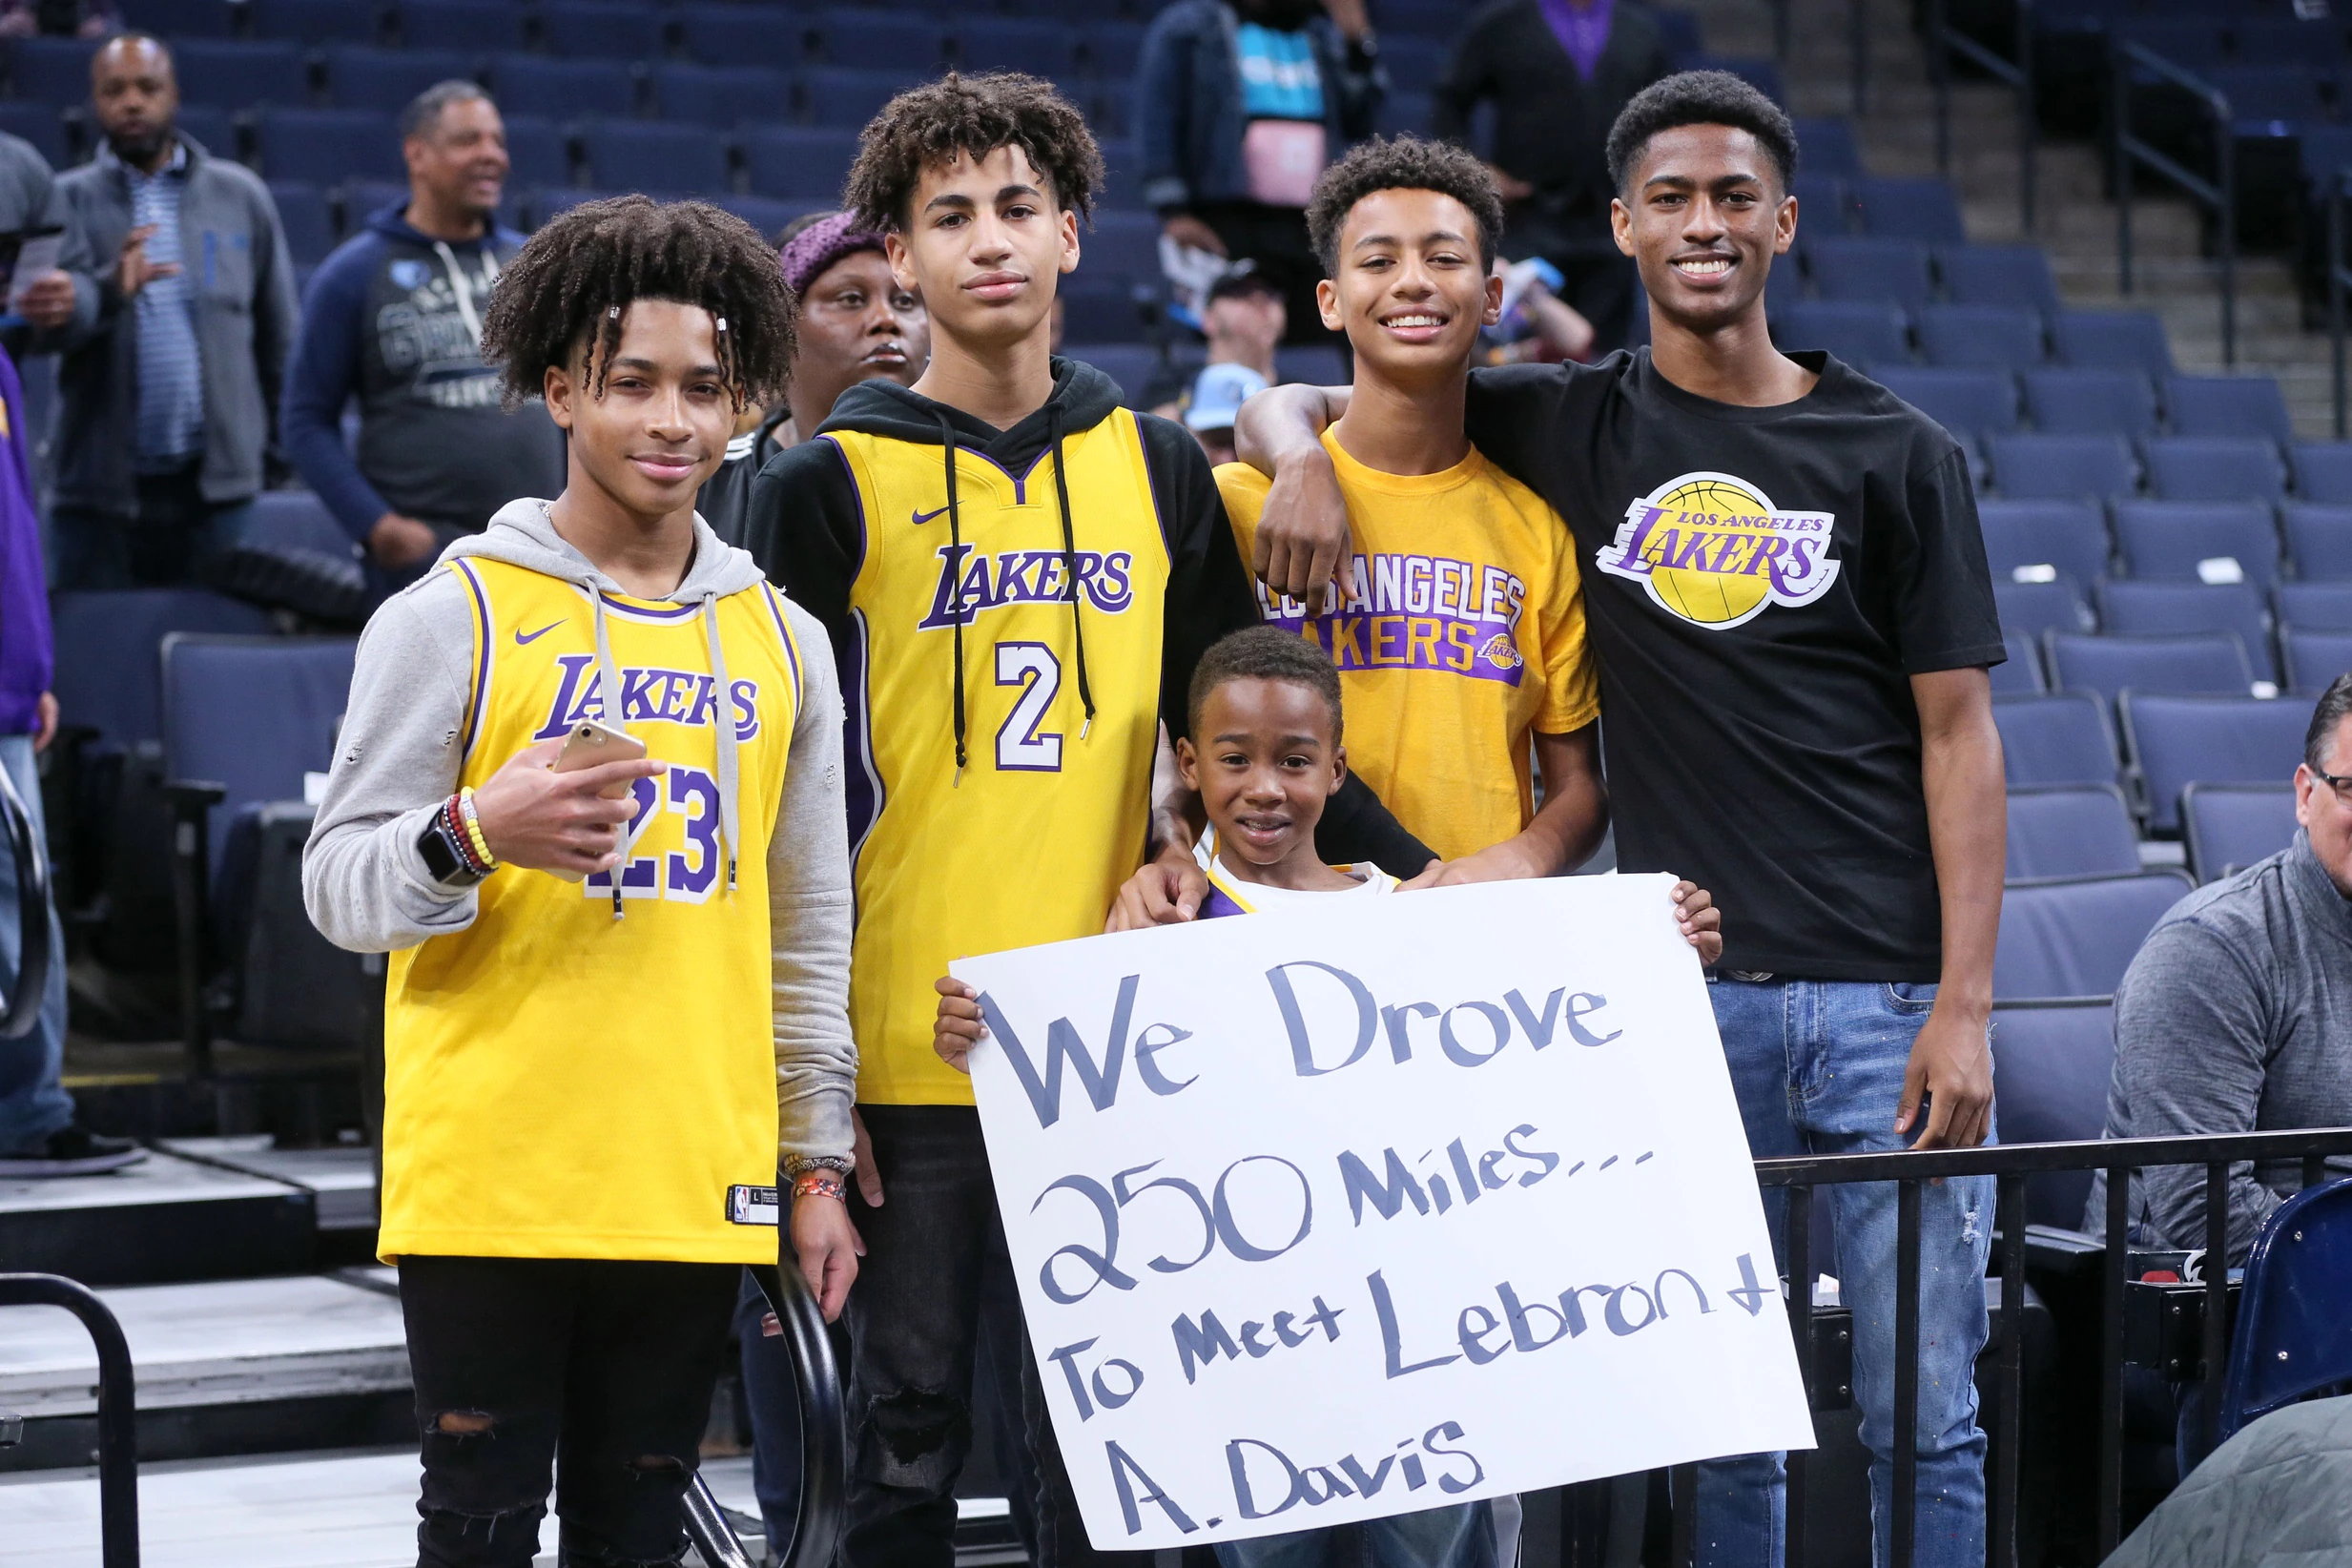 LAKERS
23
LAKERS
2
LOS ANGELES
LAKERS
LAKERS
LOS ANGELES
LAKERS
We Drove
250 Miles...
To Meet Lebron &
A. Davis
L